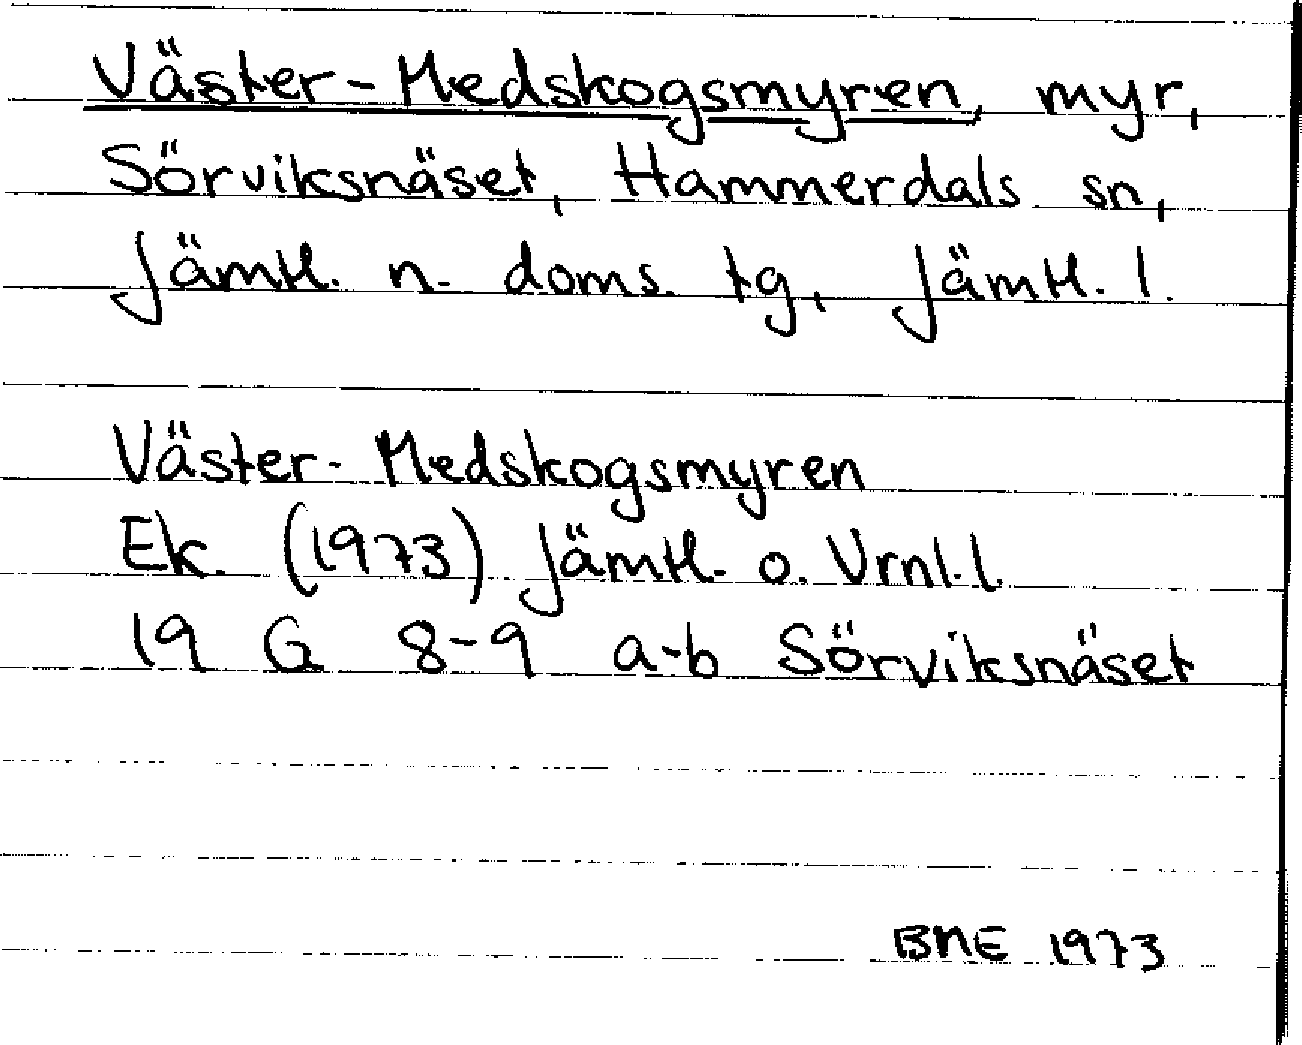 Väster-Medskogsmyren, myr,
Sörviksnäset, Hammerdals sn,
Jämtl. n. doms. tg, Jämtl. l.
Väster-Medskogsmyren
Ek. (1973) Jämtl. o. Vrnl.l.
19 G 8-9 a-b Sörviksnäset
BME 1973